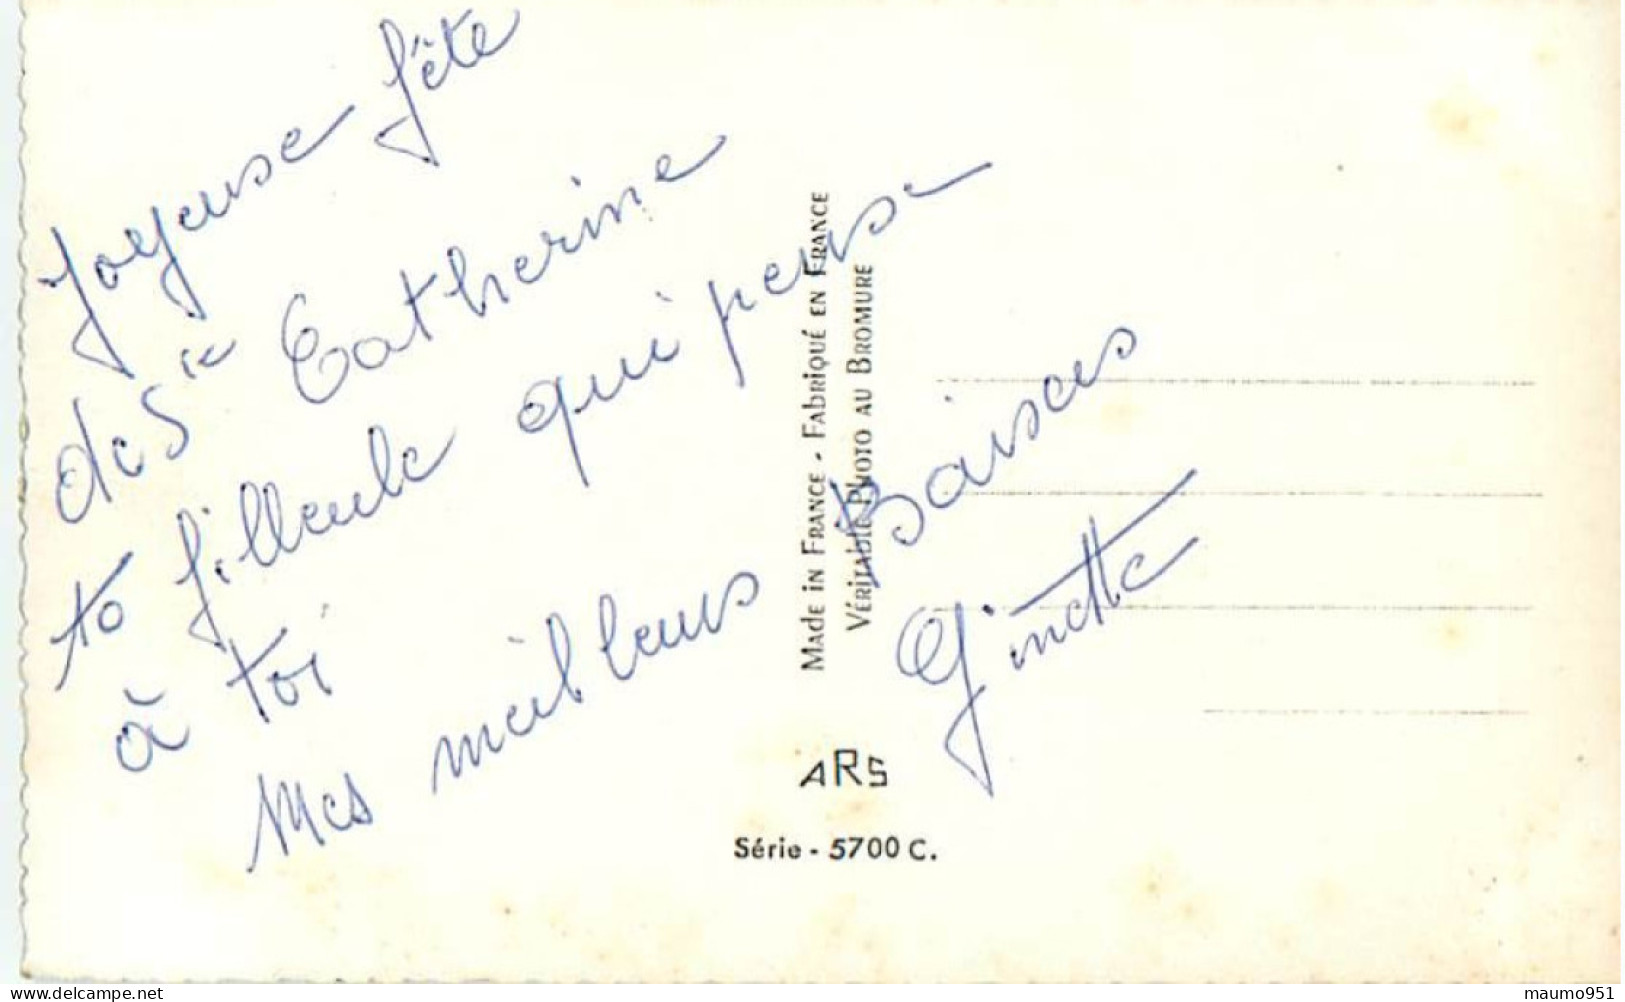 Joyeuse fête
de Ste Catherine
ta filleule qui pense
à toi
Mes meilleurs Baisers
Ginette
MADE IN FRANCE - FABRIQUÉ EN FRANCE
VÉRITABLE PHOTO AU BROMURE
ARS
Série - 5700 C.
delcampe.net
maumo951